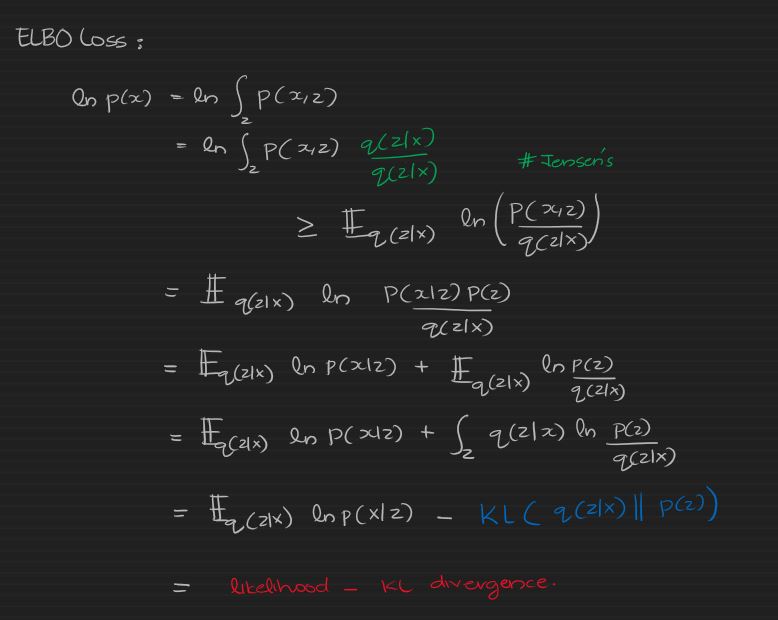 ELBO Loss :
ln p(x) = ln ∫_z P(x,z)
= ln ∫_z P(x,z) q(z|x)/q(z|x) # Jensen's
≥ 𝔼_q(z|x) ln (P(x,z)/q(z|x))
= 𝔼_q(z|x) ln P(x|z)P(z)/q(z|x)
= 𝔼_q(z|x) ln P(x|z) + 𝔼_q(z|x) ln P(z)/q(z|x)
= 𝔼_q(z|x) ln P(x|z) + ∫_z q(z|x) ln P(z)/q(z|x)
= 𝔼_q(z|x) ln p(x|z) – KL( q(z|x) || p(z))
= likelihood – KL divergence.